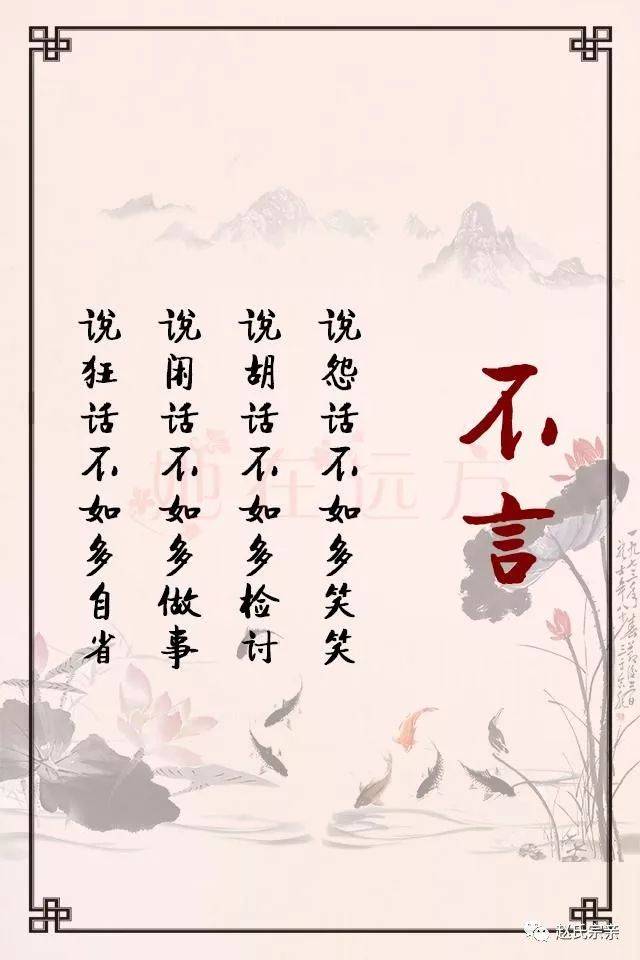 不言
说怨话不如多笑笑
说胡话不如多检讨
说闲话不如多做事
说狂话不如多自省
她在远方
赵氏宗亲